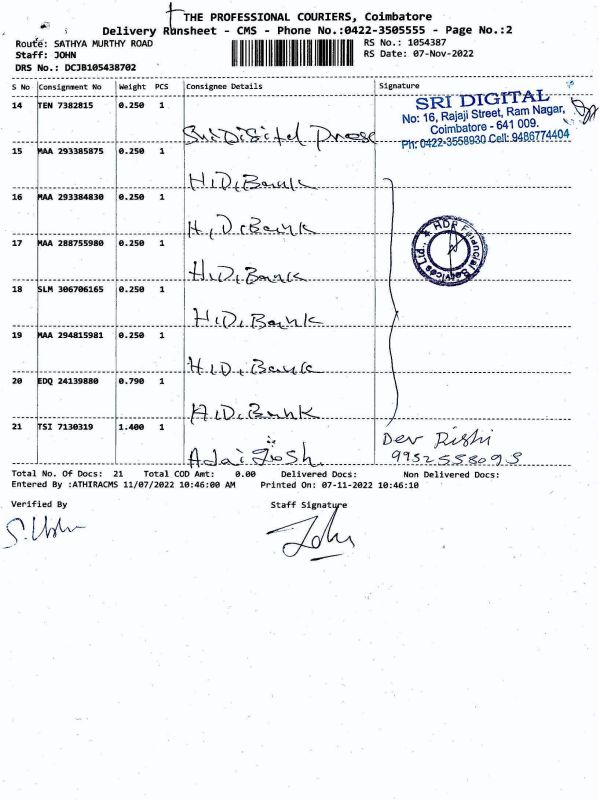 THE PROFESSIONAL COURIERS, Coimbatore
Delivery Runsheet - CMS - Phone No.:0422-3505555 - Page No.:2
Route: SATHYA MURTHY ROAD
RS No.: 1054387
Staff: JOHN
RS Date: 07-Nov-2022
DRS No.: DCJB105438702
S No Consignment No Weight PCS Consignee Details Signature
14 TEN 7382815 0.250 1
SRI DIGITAL
No: 16, Rajaji Street, Ram Nagar,
Coimbatore - 641 009.
Ph: 0422-3558930 Cell: 9486774404
Sri Digital
15 MAA 293385875 0.250 1
H.D.Bank
16 MAA 293384830 0.250 1
H.D.Bank
17 MAA 288755980 0.250 1
H.D.Bank
18 SLM 306706165 0.250 1
H.D.Bank
19 MAA 294815981 0.250 1
H.D.Bank
20 EDQ 24139880 0.790 1
H.D.Bank
HDB Financial Services Ltd.
21 TSI 7130319 1.400 1
Dev Rishi
Total No. Of Docs: 21 Total COD Amt: 0.00 Delivered Docs: Non Delivered Docs:
Entered By :ATHIRACMS 11/07/2022 10:46:00 AM Printed On: 07-11-2022 10:46:10
Verified By Staff Signature
John